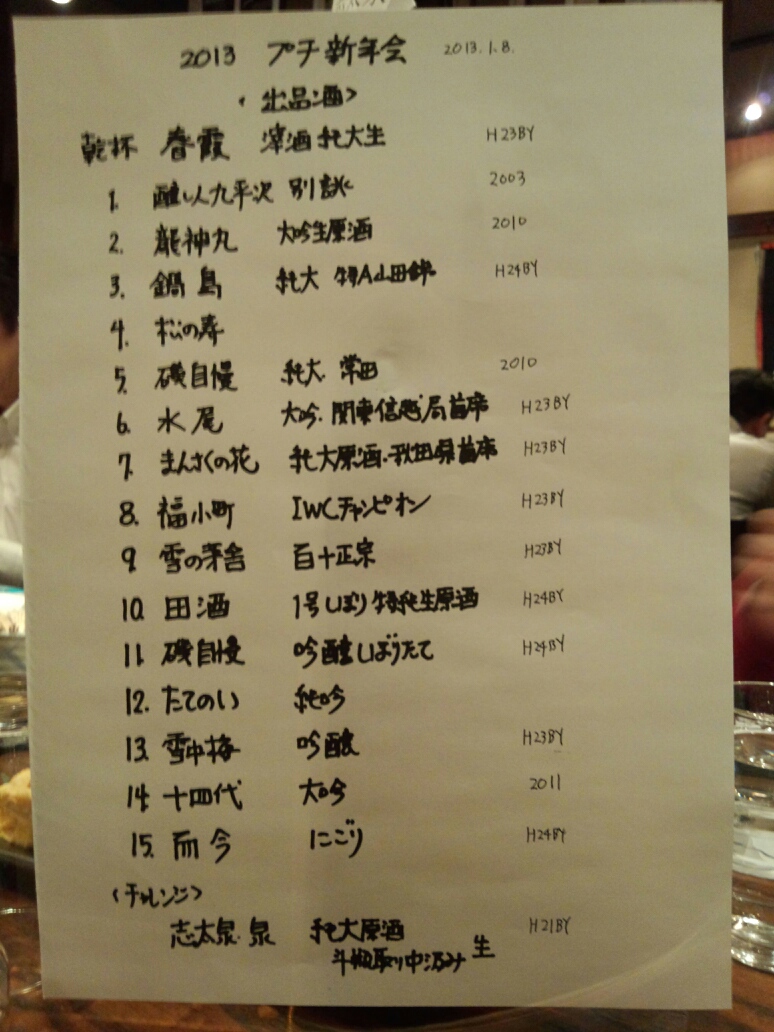 2013 プチ新年会 2013.1.8.
<出品酒>
乾杯 春霞 滓酒 純大生 H23BY
1. 醸し人九平次 別誂 2003
2. 龍神丸 大吟生原酒 2010
3. 鍋島 純大 特A山田錦 H24BY
4. 松の寿
5. 磯自慢 純大. 常田 2010
6. 水尾 大吟. 関東信越局首席 H23BY
7. まんさくの花 純大原酒.秋田県首席 H23BY
8. 福小町 IWCチャンピオン H23BY
9. 雪の茅舎 百十正宗 H23BY
10. 田酒 1号しぼり 特純生原酒 H24BY
11. 磯自慢 吟醸しぼりたて H24BY
12. たてのい 純吟
13. 雪中梅 吟醸 H23BY
14. 十四代 大吟 2011
15. 而今 にごり H24BY
<チャレンジ>
志太泉 泉 純大原酒 H21BY
斗瓶取り中汲み 生